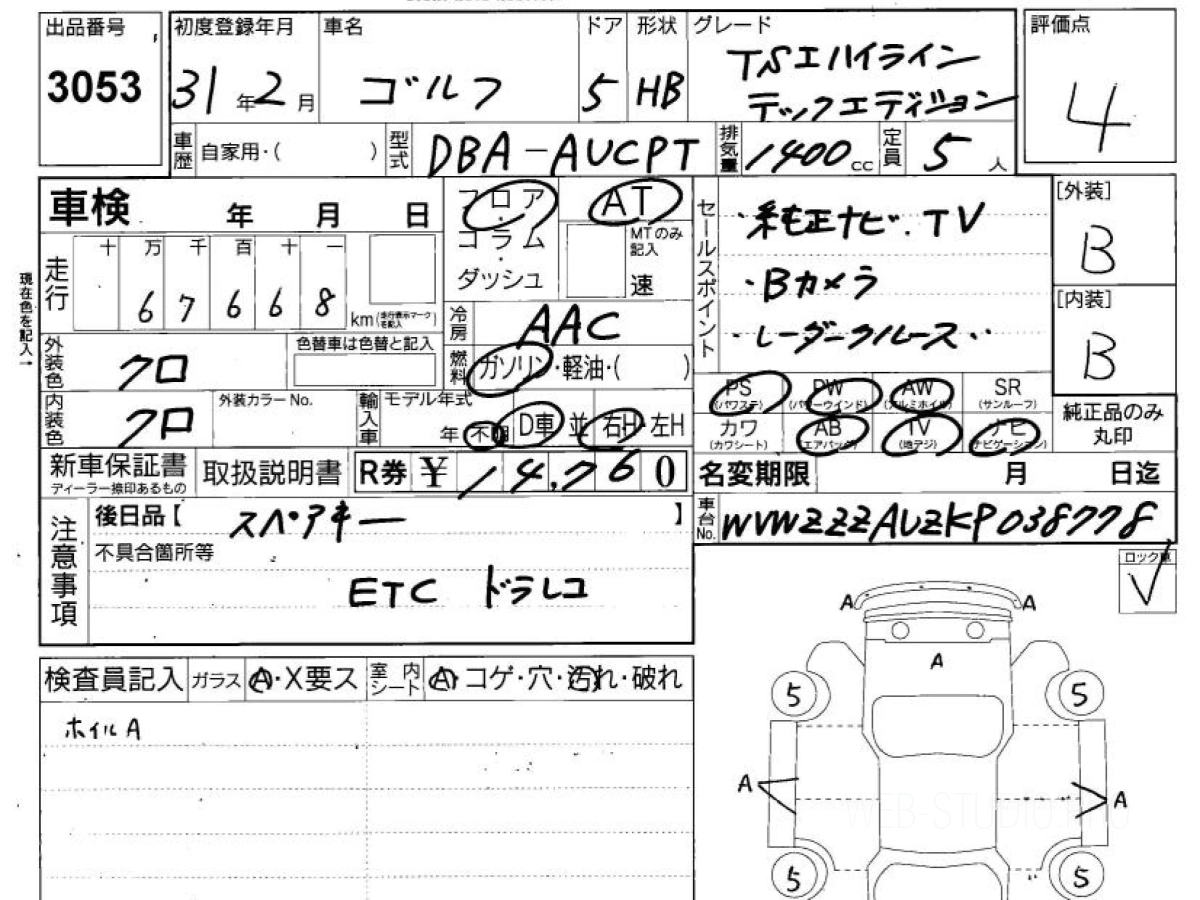 出品番号
3053
初度登録年月
31年2月
車名
ゴルフ
ドア
5
形状
HB
グレード
TSIハイライン
テックエディション
評価点
4
車歴
自家用・(　　)
型式
DBA-AUCPT
排気量
1400cc
定員
5人
車検
年　月　日
フロア
コラム
・
ダッシュ
AT
MTのみ
記入
速
セールスポイント
・純正ナビ・TV
・Bカメラ
・レーダークルーズ・・
[外装]
B
[内装]
B
現在色を記入→
走行
十 万 千 百 十 一
6 7 6 6 8
km(走行表示マークを記入)
冷房
AAC
外装色
クロ
色替車は色替と記入
燃料
ガソリン・軽油・(　　)
内装色
クロ
外装カラーNo.
輸入車
モデル年式
年 不明
D車 並
右H・左H
PS
(パワステ)
PW
(パワーウインド)
AW
(アルミホイル)
SR
(サンルーフ)
カワ
(カワシート)
AB
(エアバッグ)
TV
(地デジ)
ナビ
(ナビゲーション)
純正品のみ
丸印
新車保証書
ディーラー捺印あるもの
取扱説明書
R券 ¥ 14,760
名変期限　月　日迄
注意事項
後日品【 スペアキー 】
不具合箇所等
ETC ドラレコ
車台No.
WVWZZZAUZKP038778
ロック車
✓
検査員記入
ガラス
A・X要ス
室内シート
A・コゲ・穴・汚れ・破れ
ホイルA
A A
A
5 5
A A
5 5
WEB-STUDIO.PRO